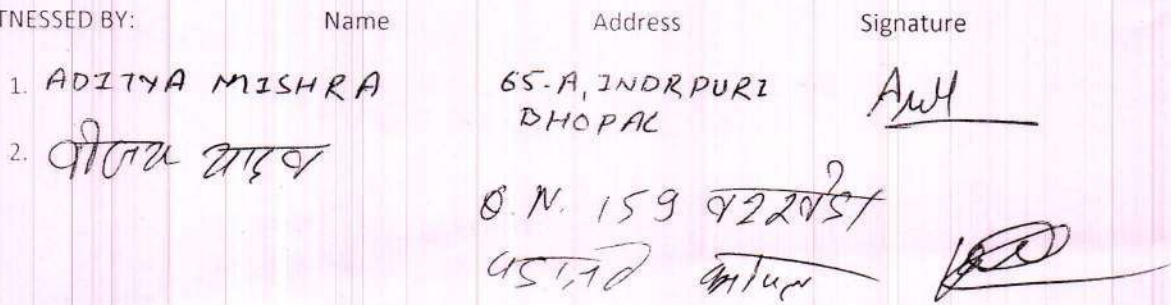 TNESSED BY: Name Address Signature
1. ADITYA MISHRA 65-A, INDRPURI
BHOPAL
2. वीजय यादव
159
भोपाल